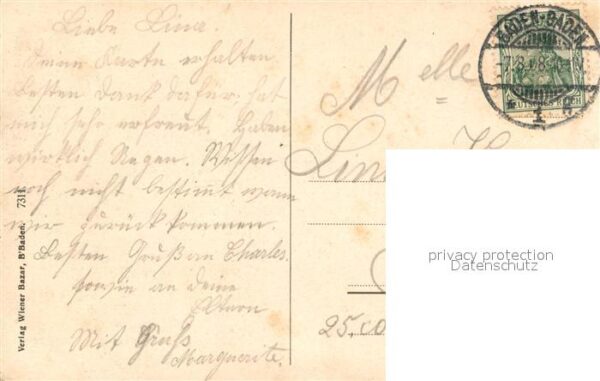 Liebe Lina.
Deine Karte erhalten
besten Dank dafür, hat
mich sehr erfreut. Haben
wirklich Regen. Wissen
noch nicht bestimmt wann
wir zurück kommen.
Besten Gruß an Charles.
sowie an deine
Eltern
Mit Gruß
Marguerite.
Verlag Wiener Bazar, B'Baden. 7311.
Melle
BADEN-BADEN
DEUTSCHES REICH
privacy protection
Datenschutz
25.00